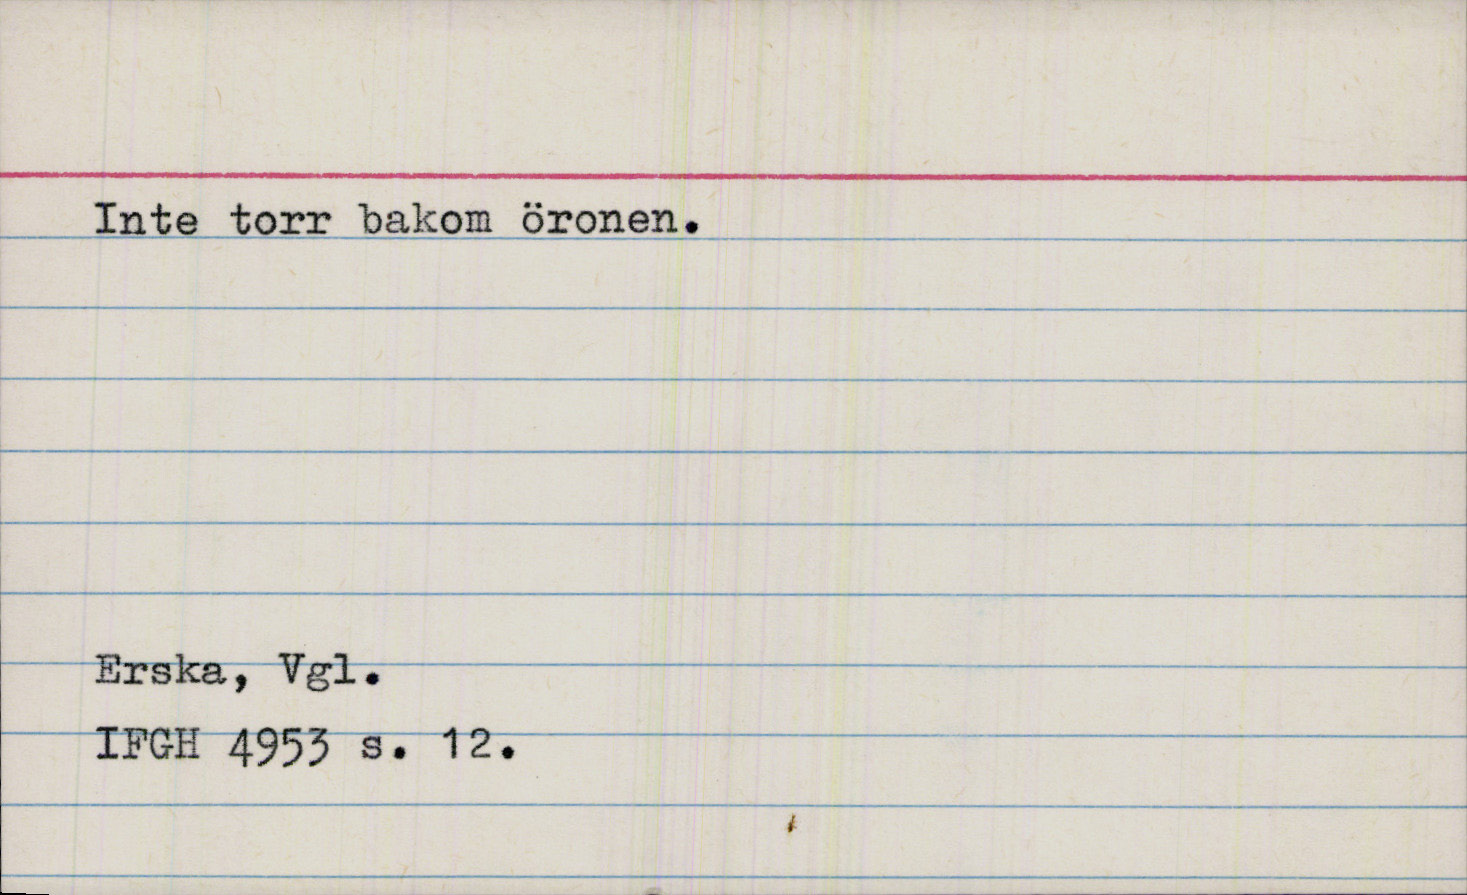 Inte torr bakom öronen.
Erska, Vgl.
IFGH 4953 s. 12.